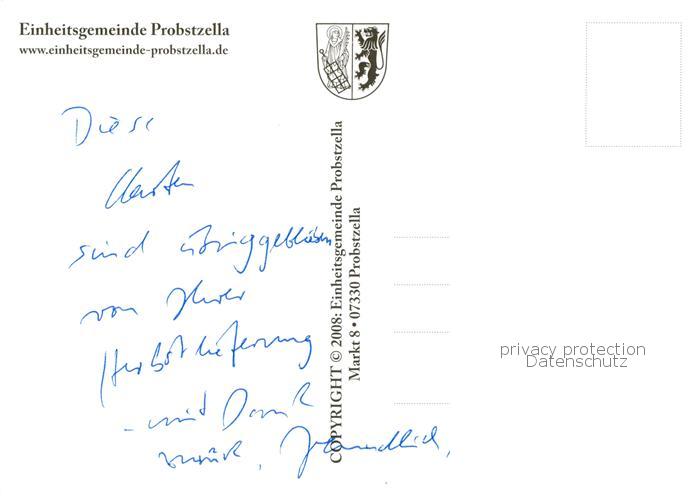 Einheitsgemeinde Probstzella
www.einheitsgemeinde-probstzella.de
Diese
Karten
sind übriggeblieben
von Ihrer
Herbstlieferung
- mit Dank
zurück. Freundlich,
COPYRIGHT © 2008: Einheitsgemeinde Probstzella
Markt 8 • 07330 Probstzella
privacy protection
Datenschutz